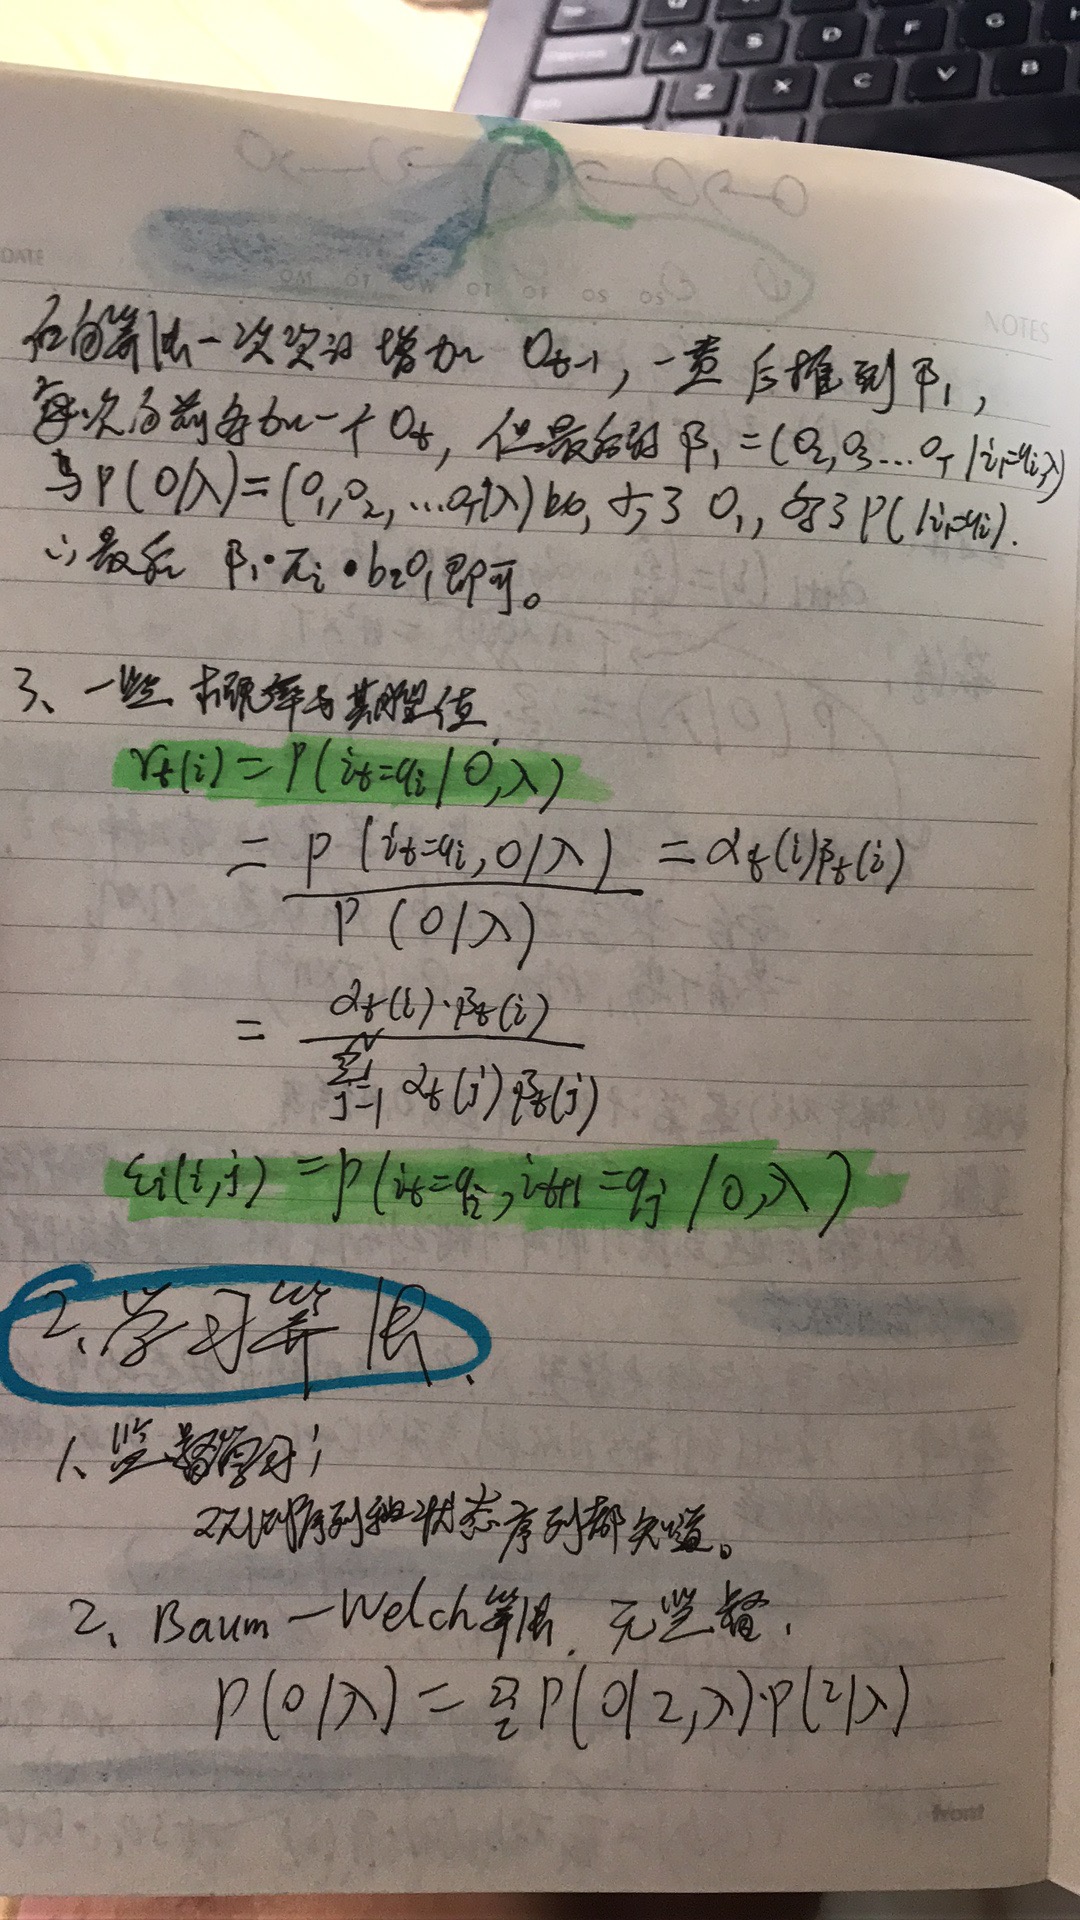 A S D F G H
Z X C V B
DATE
NOTES
后向算法一次次的增加 O_{t-1}, 一直后推到 β₁,
每次向前多加一个 O_t, 但最后的 β₁ = (O₂,O₃...O_T | i₁=q_i,λ)
与 P(O|λ) = (O₁,O₂,...O_T|λ) 比, 少了 O₁, 多了 P(|i₁=q_i).
∴ 最后 β₁·π_i·b₂O₁即可。
3、一些概率与期望值.
γ_t(i) = P(i_t=q_i | O,λ)
= P(i_t=q_i,O|λ) / P(O|λ) = α_t(i)β_t(i)
= α_t(i)·β_t(i) / Σ_{j=1}^{N} α_t(j)β_t(j)
ξ_i(i,j) = P(i_t=q_i,i_{t+1}=q_j | O,λ)
2、学习算法.
1、监督学习;
观测序列和状态序列都知道。
2、Baum-Welch算法. 无监督.
P(O|λ) = Σ P(O|I,λ)·P(I|λ)
front